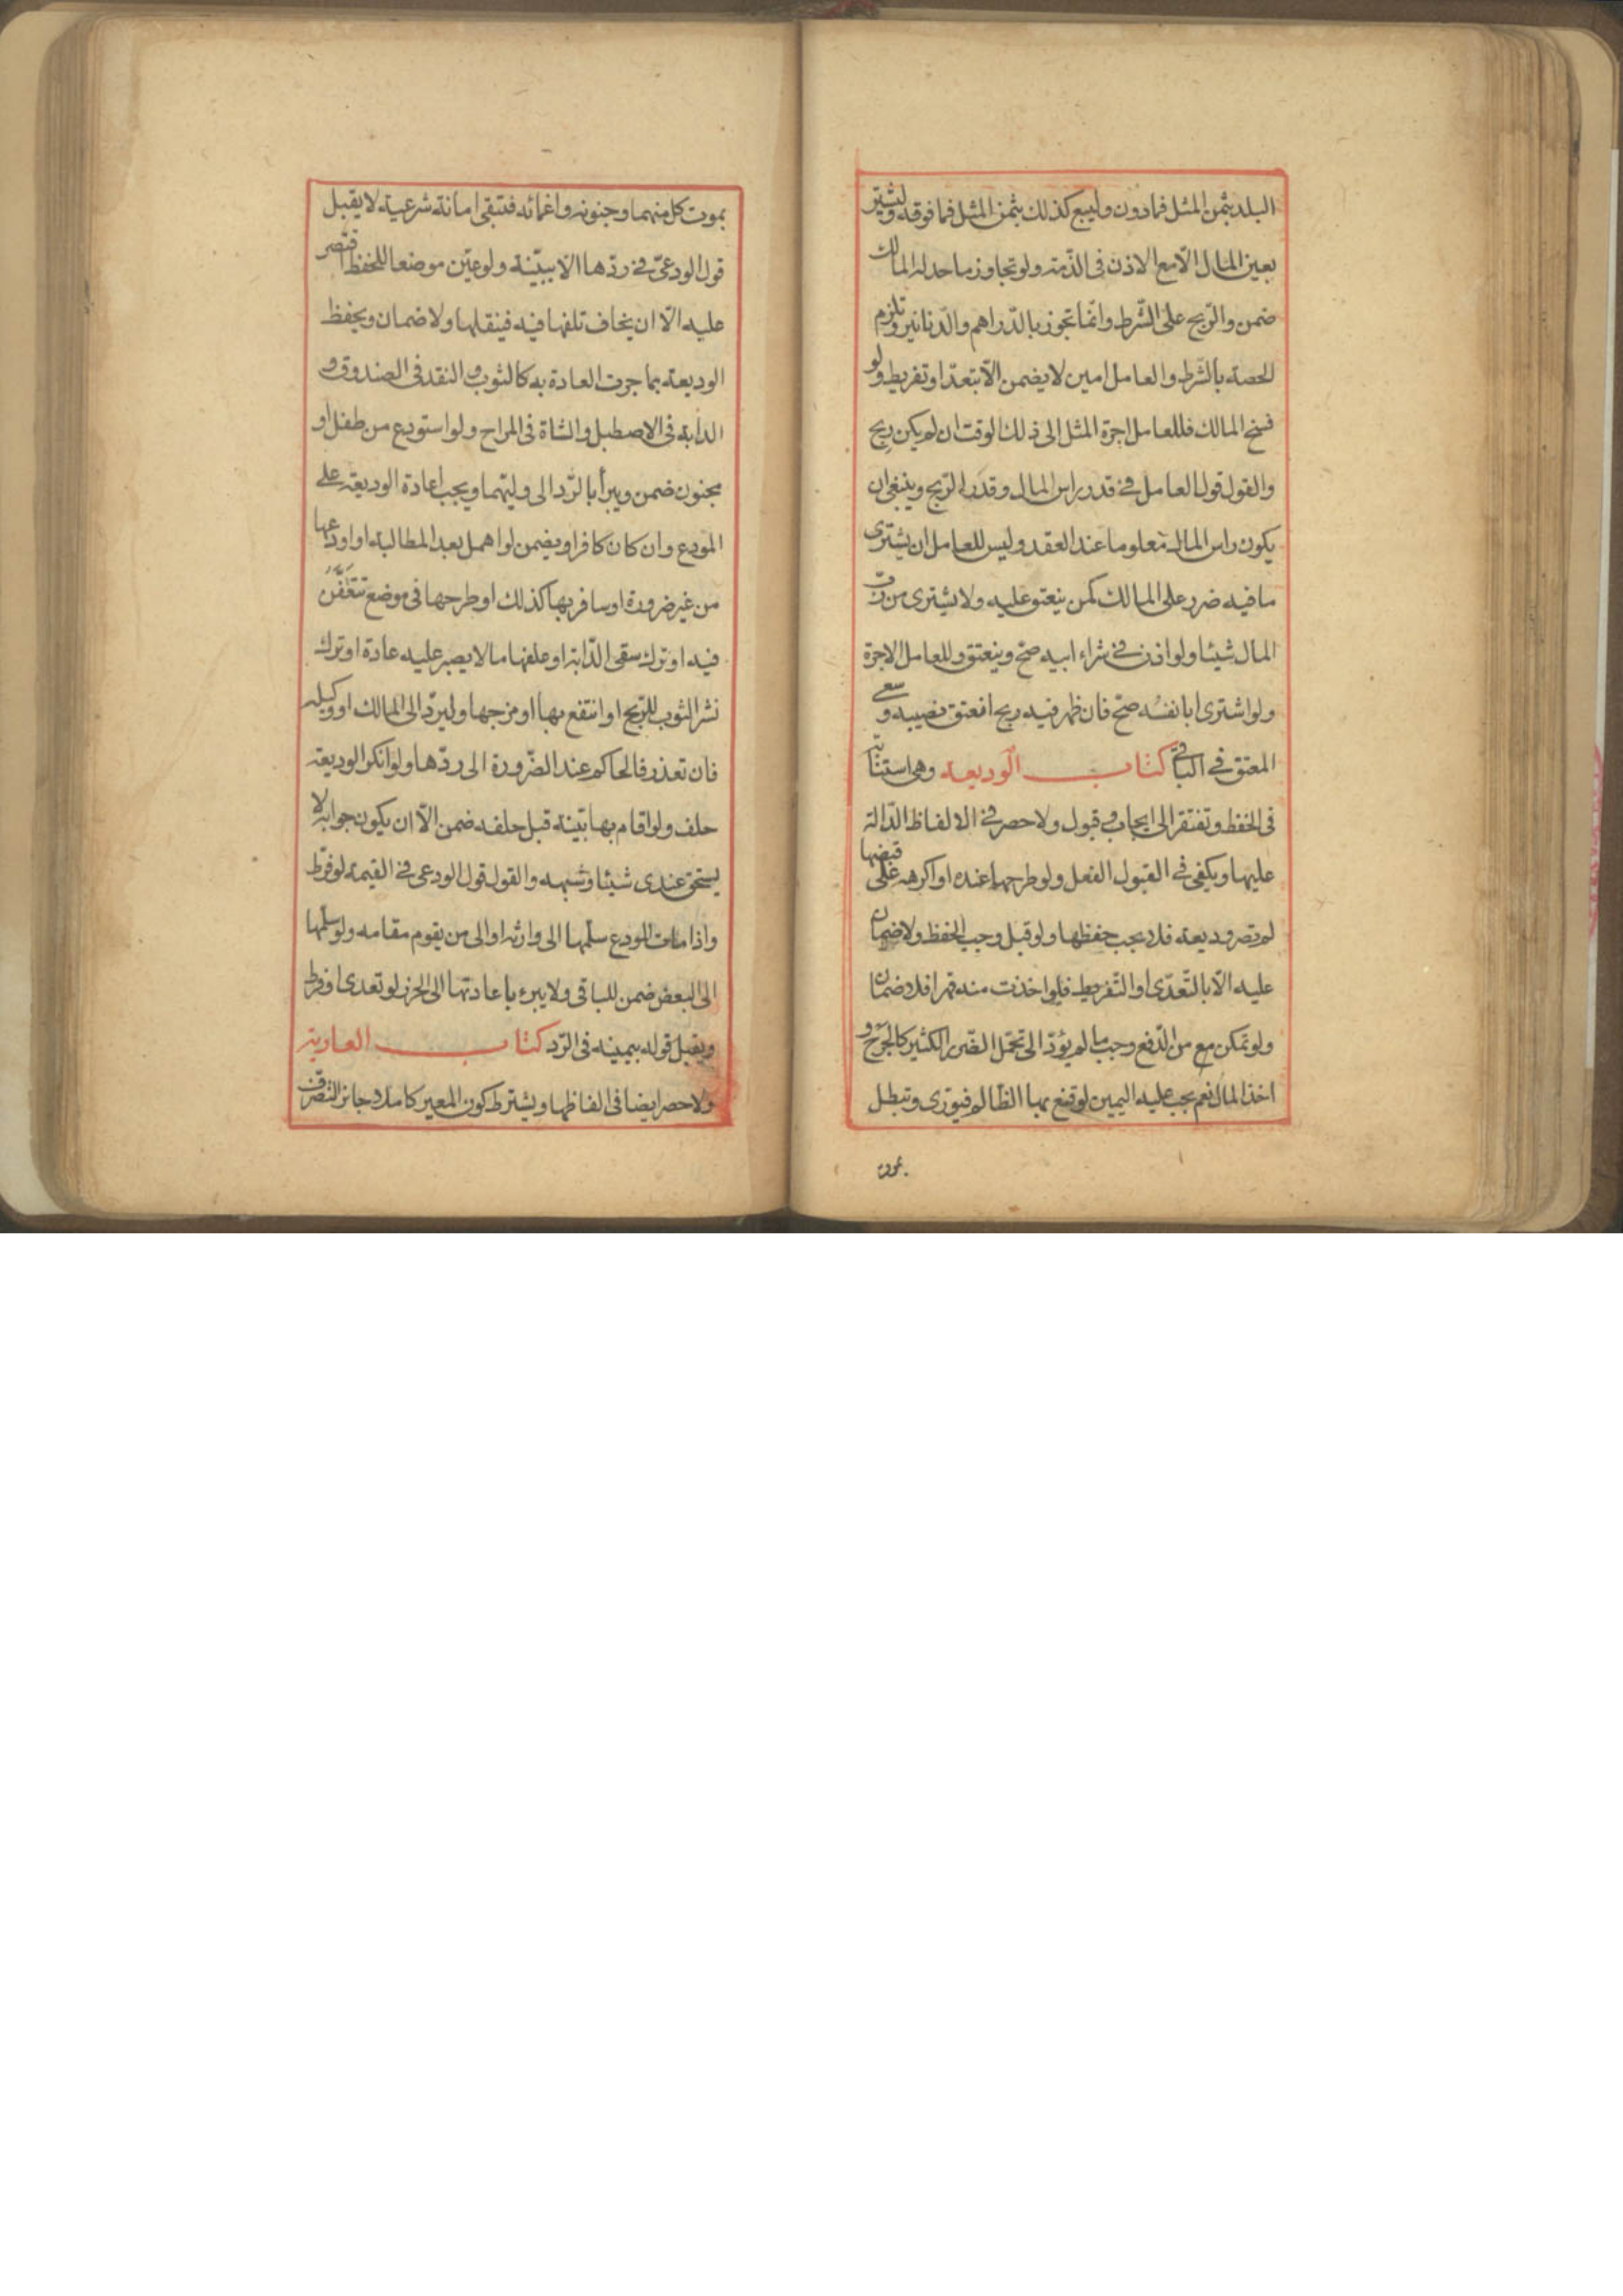 البلد بثمن المثل فمادون وليبع كذلك بثمن المثل فما فوقه وليشتر
بعين المال الّا مع الاذن فى الذّمة ولو تجاوز ما حد له المالك
ضمن والرّبح على الشّرط وانّما تجوز بالدّراهم والدّنانير وتلزم
الحصة بالشّرط والعامل امين لا يضمن الّا بتعدّ او تفريط ولو
فسخ المالك فللعامل اجرة المثل الى ذلك الوقت ان لم يكن ربح
والقول قول العامل فى قدر راس المال وقدر الرّبح وينبغى ان
يكون راس المال معلوما عند العقد وليس للعامل ان يشترى
ما فيه ضرر على المالك كمن ينعتق عليه ولا يشترى من ربّ
المال شيئا ولو اذن فى شراء ابيه صحّ وينعتق وللعامل الاجرة
ولو اشترى ابا نفسه صحّ فان ظهر فيه ربح انعتق نصيبه وسعى
المعتق فى الباقى كتاب الوديعة وهى استنابة
فى الحفظ وتفتقر الى ايجاب وقبول ولا حصر فى الالفاظ الدّالة
عليها ويكفى فى القبول الفعل ولو طرحها عنده او اكرهه على قبضها
لم تصر وديعة فلا يجب حفظها ولو قبل وجب الحفظ ولا ضمان
عليه الّا بالتّعدّى او التّفريط فلو اخذت منه قهرا فلا ضمان
ولو تمكن من الدّفع وجب ما لم يؤدّ الى تحمّل الضّرر الكثير كالجرح و
اخذ المال نعم يجب عليه اليمين لو قنع بها الظّالم فيورى وتبطل
بموت
بموت كل منهما وجنونه واغمائه فتبقى امانة شرعية لا يقبل
قول الودعىّ فى ردّها الّا ببيّنة ولو عيّن موضعا للحفظ اقتصر
عليه الّا ان يخاف تلفها فيه فينقلها ولا ضمان ويحفظ
الوديعة بما جرت العادة به كالثوب والنقد فى الصندوق و
الدابة فى الاصطبل والشاة فى المراح ولو استودع من طفل او
مجنون ضمن ويبرأ بالرّد الى وليّهما ويجب اعادة الوديعة على
المودع وان كان كافرا ويضمن لو اهمل بعد المطالبة او اودعها
من غير ضرورة او سافر بها كذلك او طرحها فى موضع تتعفّن
فيه او ترك سقى الدّابة او علفها ما لا يصبر عليه عادة او ترك
نشر الثوب للرّيح او انتفع بها او مزجها وليردّ الى المالك او وكيله
فان تعذر فالحاكم عند الضّرورة الى ردّها ولو انكر الوديعة
حلف ولو اقام بها بيّنة قبل حلفه ضمن الّا ان يكون جوابه لا
يستحق عندى شيئا وشبهه والقول قول الودعى فى القيمة لو فرّط
واذا مات المودع سلّمها الى وارثه او الى من يقوم مقامه ولو سلّمها
الى البعض ضمن للباقى ولا يبرء باعادتها الى الحرز لو تعدى او فرط
ويقبل قوله بيمينه فى الرّد كتاب العارية
ولا حصر ايضا فى الفاظها ويشترط كون المعير كاملا جائز التصرّف